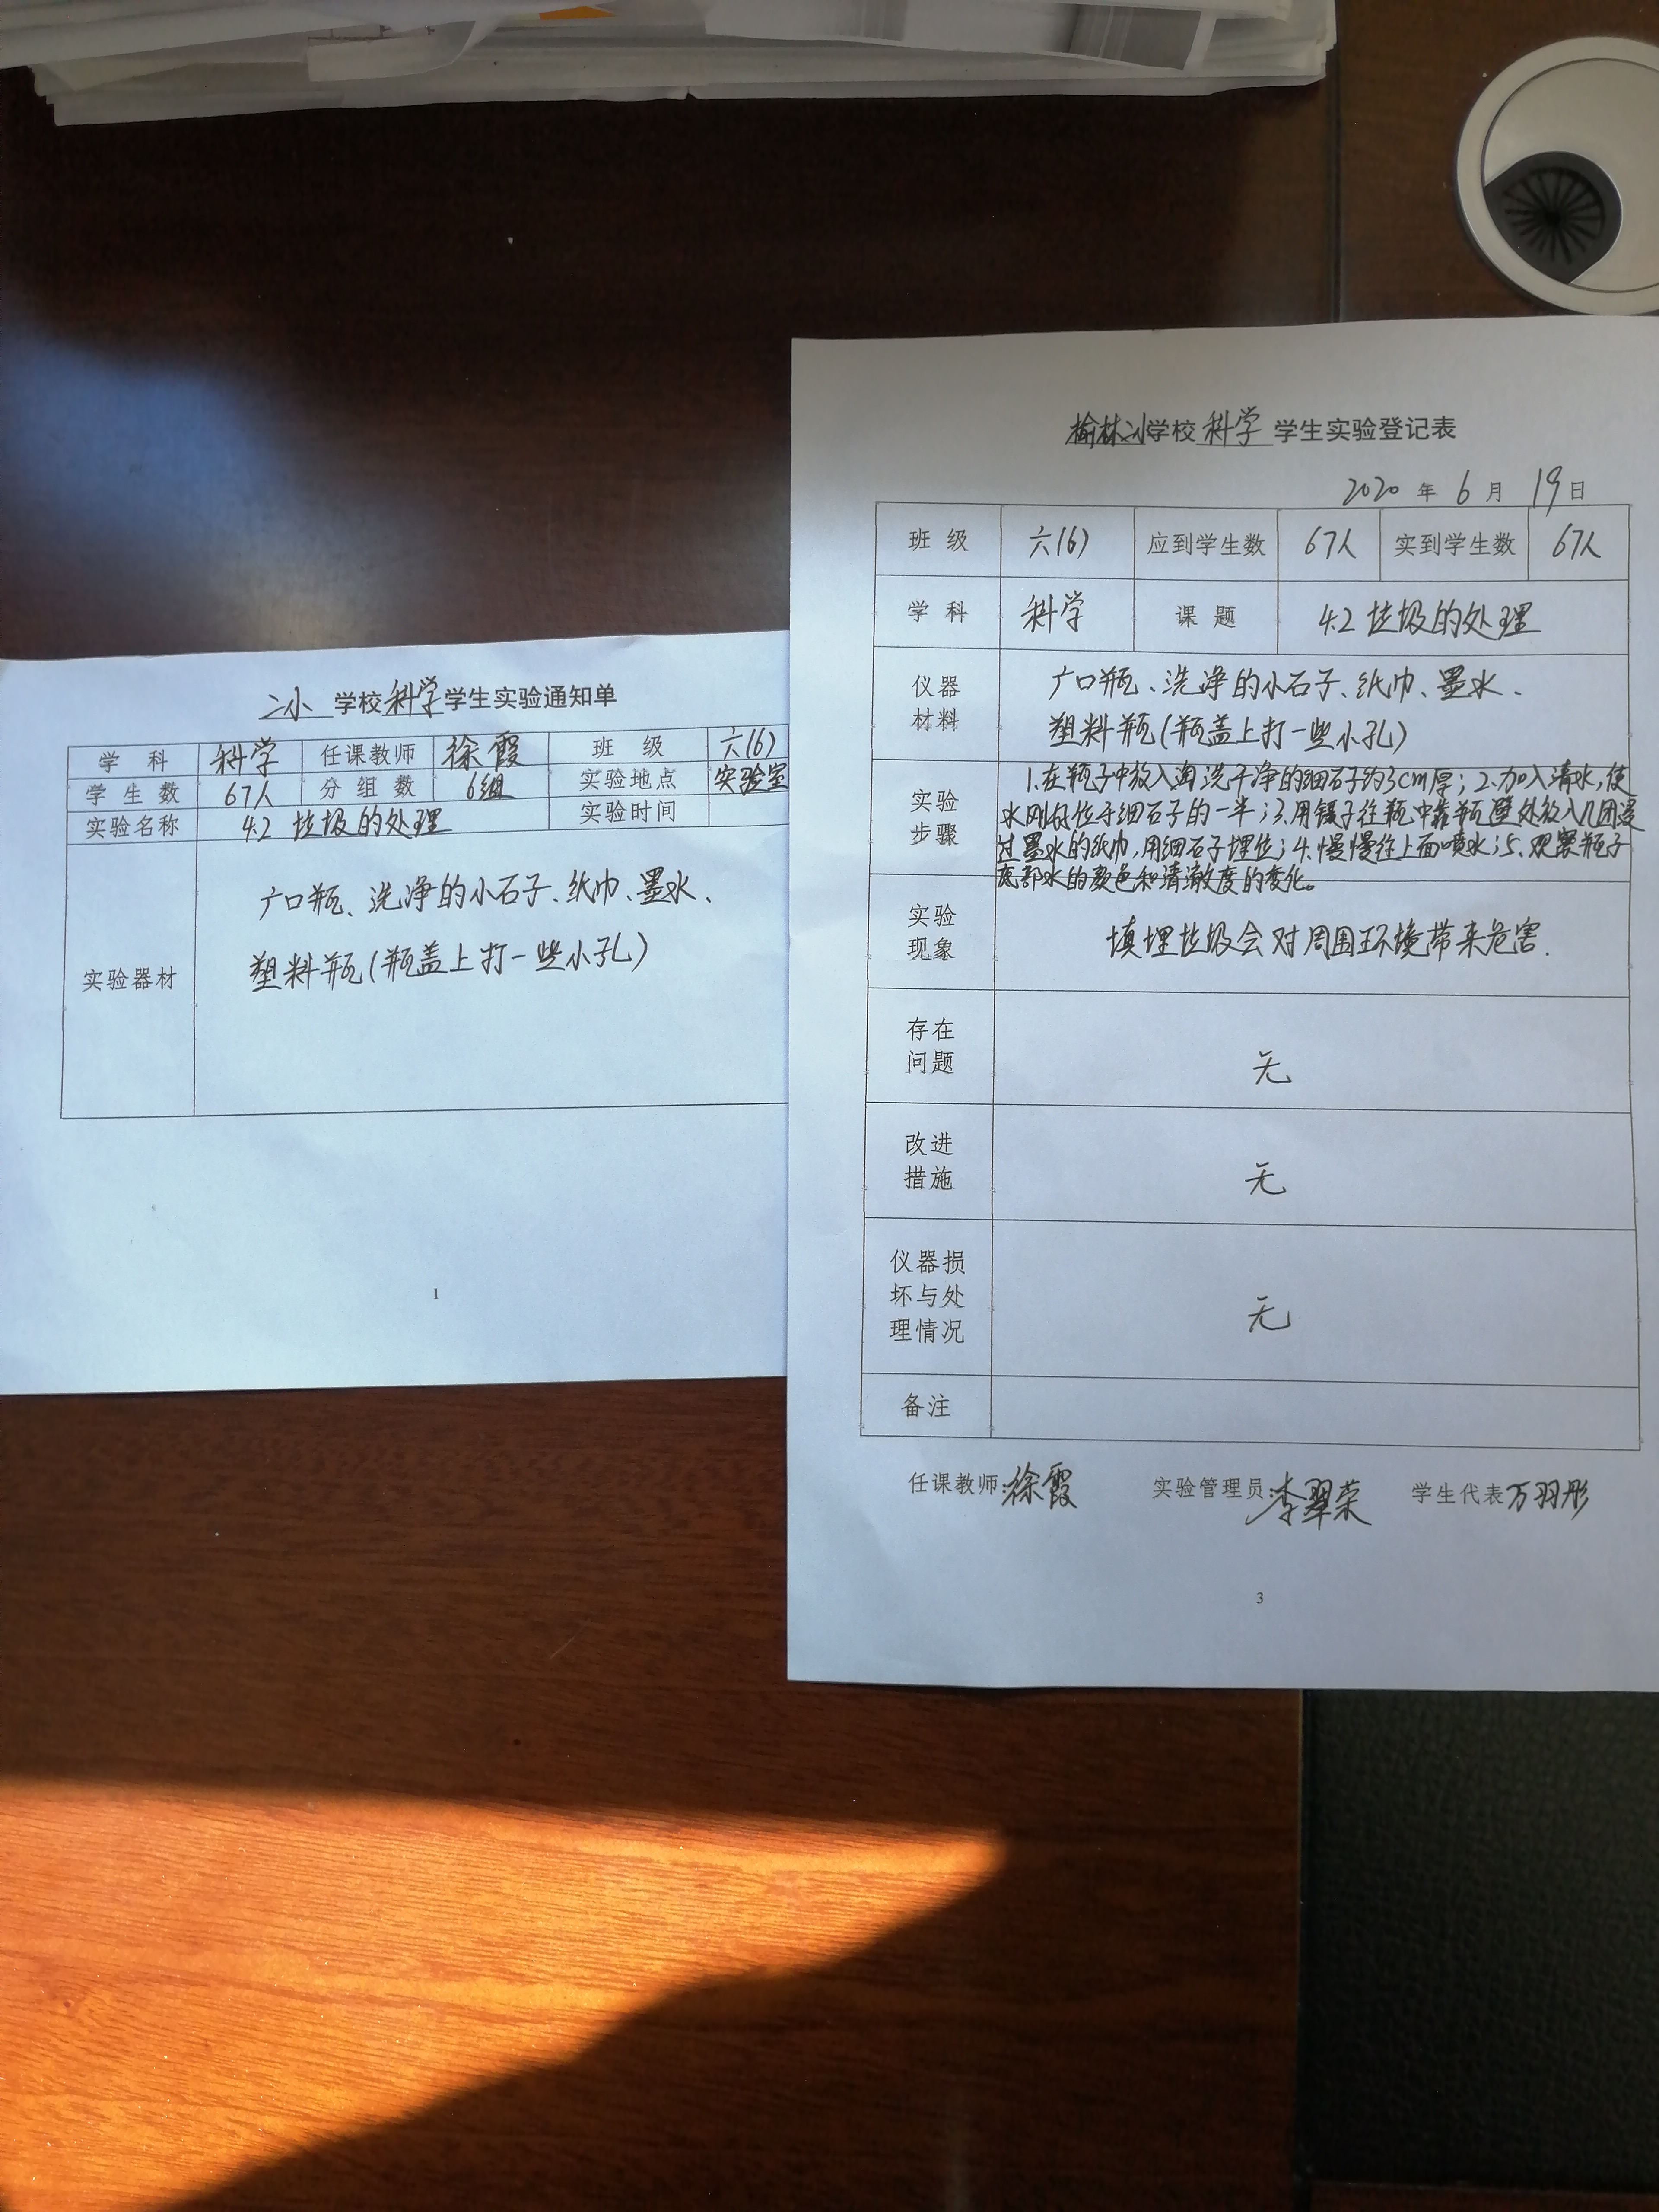 二小 学校 科学 学生实验通知单
学 科 科学 任课教师 徐霞 班 级 六(6)
学 生 数 67人 分 组 数 6组 实验地点 实验室
实验名称 4.2 垃圾的处理 实验时间
实验器材
广口瓶、洗净的小石子、纸巾、墨水、
塑料瓶(瓶盖上打一些小孔)
1
学校 科学 学生实验登记表
2020 年 6 月 19 日
班 级 六(6) 应到学生数 67人 实到学生数 67人
学 科 科学 课 题 4.2 垃圾的处理
仪器
材料
广口瓶、洗净的小石子、纸巾、墨水、
塑料瓶(瓶盖上打一些小孔)
实验
步骤
1.在瓶子中放入淘洗干净的细石子约3cm厚;2.加入清水,使
水刚好位于细石子的一半;3.用镊子往瓶中靠瓶壁处放入几团浸
过墨水的纸巾,用细石子埋住;4.慢慢往上面喷水;5.观察瓶子
底部水的颜色和清澈度的变化。
实验
现象
填埋垃圾会对周围环境带来危害.
存在
问题
无
改进
措施
无
仪器损
坏与处
理情况
无
备注
任课教师:徐霞 实验管理员:李翠荣 学生代表 万羽彤
3